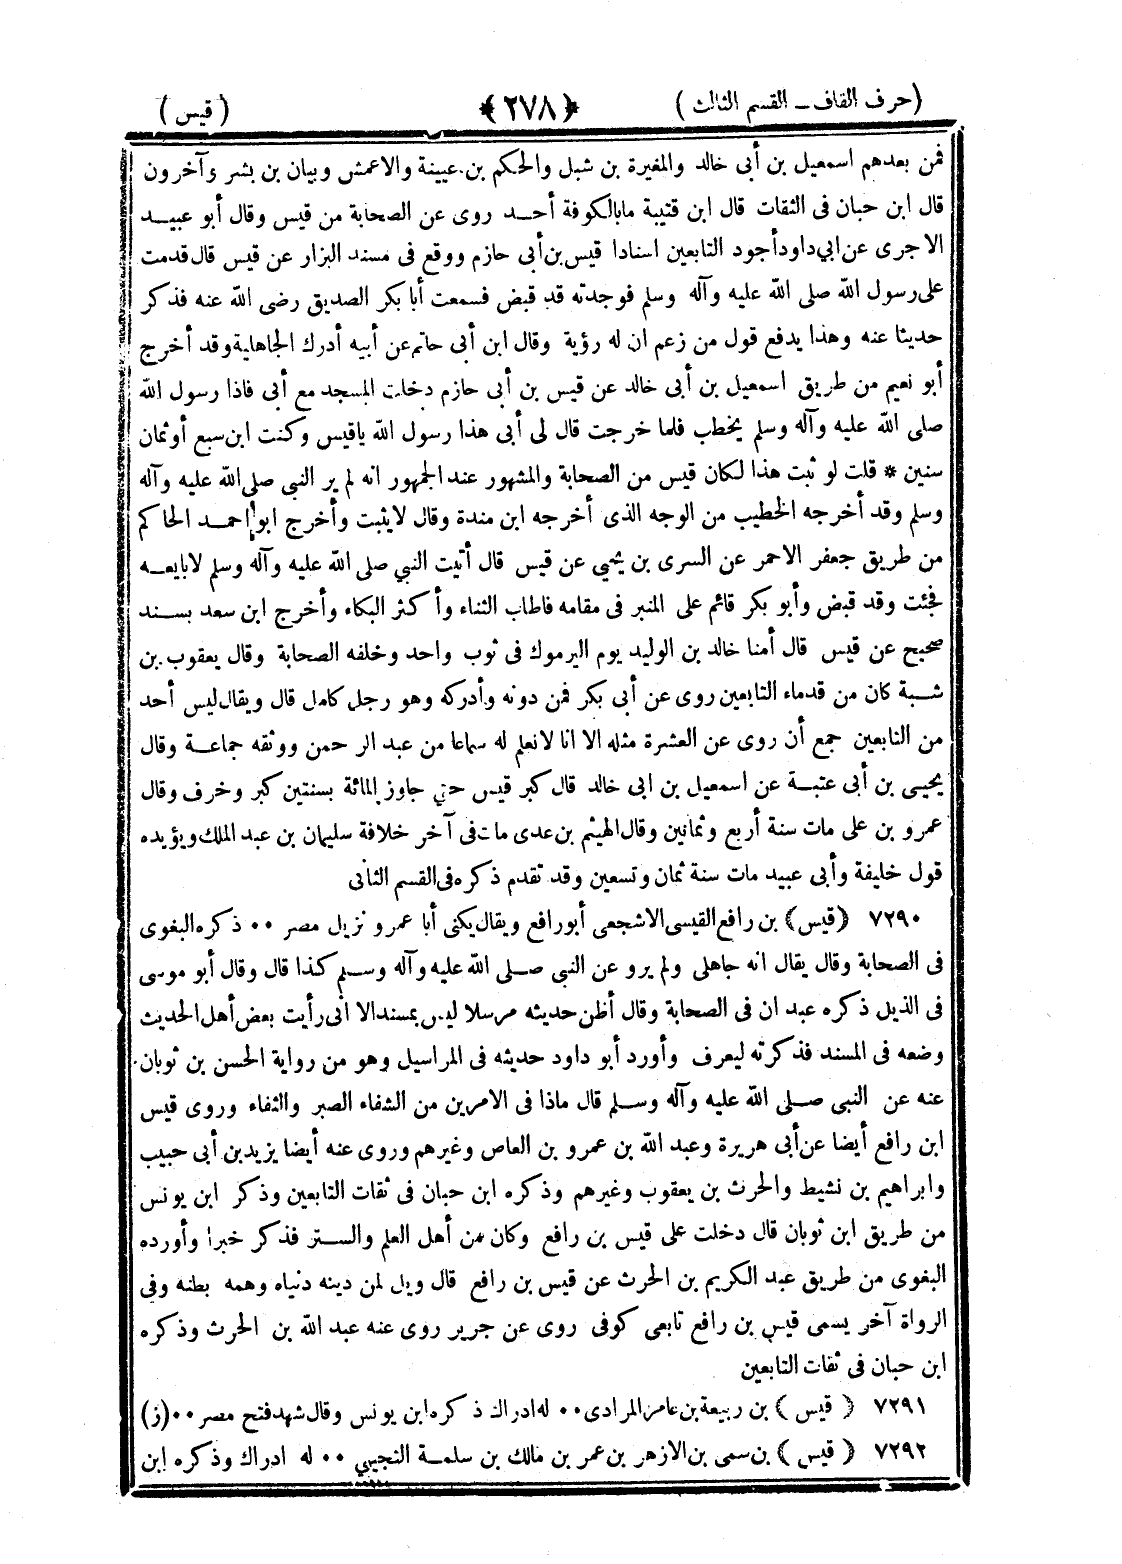 (حرف القاف ــ القسم الثالث) ﴿٢٧٨﴾ (قيس)
فمن بعدهم اسمعيل بن أبى خالد والمغيرة بن شبل والحكم بن عيينة والاعمش وبيان بن بشر وآخرون
قال ابن حبان فى الثقات قال ابن قتيبة مابالكوفة أحد روى عن الصحابة من قيس وقال أبو عبيد
الاجرى عن ابي داود أجود التابعين اسنادا قيس بن أبى حازم ووقع فى مسند البزار عن قيس قال قدمت
على رسول الله صلى الله عليه وآله وسلم فوجدته قد قبض فسمعت أبا بكر الصديق رضى الله عنه فذكر
حديثا عنه وهذا يدفع قول من زعم ان له رؤية وقال ابن أبى حاتم عن أبيه أدرك الجاهلية وقد أخرج
أبو نعيم من طريق اسمعيل بن أبى خالد عن قيس بن أبى حازم دخلت المسجد مع أبى فاذا رسول الله
صلى الله عليه وآله وسلم يخطب فلما خرجت قال لى أبى هذا رسول الله ياقيس وكنت ابن سبع أوثمان
سنين * قلت لو ثبت هذا لكان قيس من الصحابة والمشهور عند الجمهور انه لم ير النبى صلى الله عليه وآله
وسلم وقد أخرجه الخطيب من الوجه الذى أخرجه ابن مندة وقال لايثبت وأخرج ابو احمد الحاكم
من طريق جعفر الاحمر عن السرى بن يحيي عن قيس قال أتيت النبي صلى الله عليه وآله وسلم لابايعه
فجئت وقد قبض وأبو بكر قائم على المنبر فى مقامه فاطاب الثناء وأكثر البكاء وأخرج ابن سعد بسند
صحيح عن قيس قال أمنا خالد بن الوليد يوم اليرموك فى ثوب واحد وخلفه الصحابة وقال يعقوب بن
شبة كان من قدماء التابعين روى عن أبى بكر فمن دونه وأدركه وهو رجل كامل قال ويقال ليس أحد
من التابعين جمع أن روى عن العشرة مثله الا انا لانعلم له سماعا من عبد الرحمن ووثقه جماعة وقال
يحيى بن أبى عتبة عن اسمعيل بن ابى خالد قال كبر قيس حتي جاوز المائة بسنتين كبر وخرف وقال
عمرو بن على مات سنة أربع وثمانين وقال الهيثم بن عدى مات فى آخر خلافة سليمان بن عبد الملك ويؤيده
قول خليفة وأبى عبيد مات سنة ثمان وتسعين وقد تقدم ذكره فى القسم الثانى
٧٢٩٠ (قيس) بن رافع القيسى الاشجعى أبو رافع ويقال يكنى أبا عمرو نزيل مصر ٠٠ ذكره البغوى
فى الصحابة وقال يقال انه جاهلى ولم يرو عن النبى صلى الله عليه وآله وسلم كذا قال وقال أبو موسى
فى الذيل ذكره عبدان فى الصحابة وقال أظن حديثه مرسلا ليس بمسند الا انى رأيت بعض أهل الحديث
وضعه فى المسند فذكرته ليعرف وأورد أبو داود حديثه فى المراسيل وهو من رواية الحسن بن ثوبان
عنه عن النبى صلى الله عليه وآله وسلم قال ماذا فى الامرين من الشفاء الصبر والثفاء وروى قيس
ابن رافع أيضا عن أبى هريرة وعبد الله بن عمرو بن العاص وغيرهم وروى عنه أيضا يزيد بن أبى حبيب
وابراهيم بن نشيط والحرث بن يعقوب وغيرهم وذكره ابن حبان فى ثقات التابعين وذكر ابن يونس
من طريق ابن ثوبان قال دخلت على قيس بن رافع وكان من أهل العلم والستر فذكر خبرا وأورده
البغوى من طريق عبد الكريم بن الحرث عن قيس بن رافع قال ويل لمن دينه دنياه وهمه بطنه وفي
الرواة آخر يسمى قيس بن رافع تابعى كوفى روى عن جرير روى عنه عبد الله بن الحرث وذكره
ابن حبان فى ثقات التابعين
٧٢٩١ (قيس) بن ربيعة بن عامر المرادى ٠٠ له ادراك ذكره ابن يونس وقال شهد فتح مصر ٠٠ (ز)
٧٢٩٢ (قيس) بن سمى بن الازهر بن عمر بن مالك بن سلمة التجيبي ٠٠ له ادراك وذكره ابن